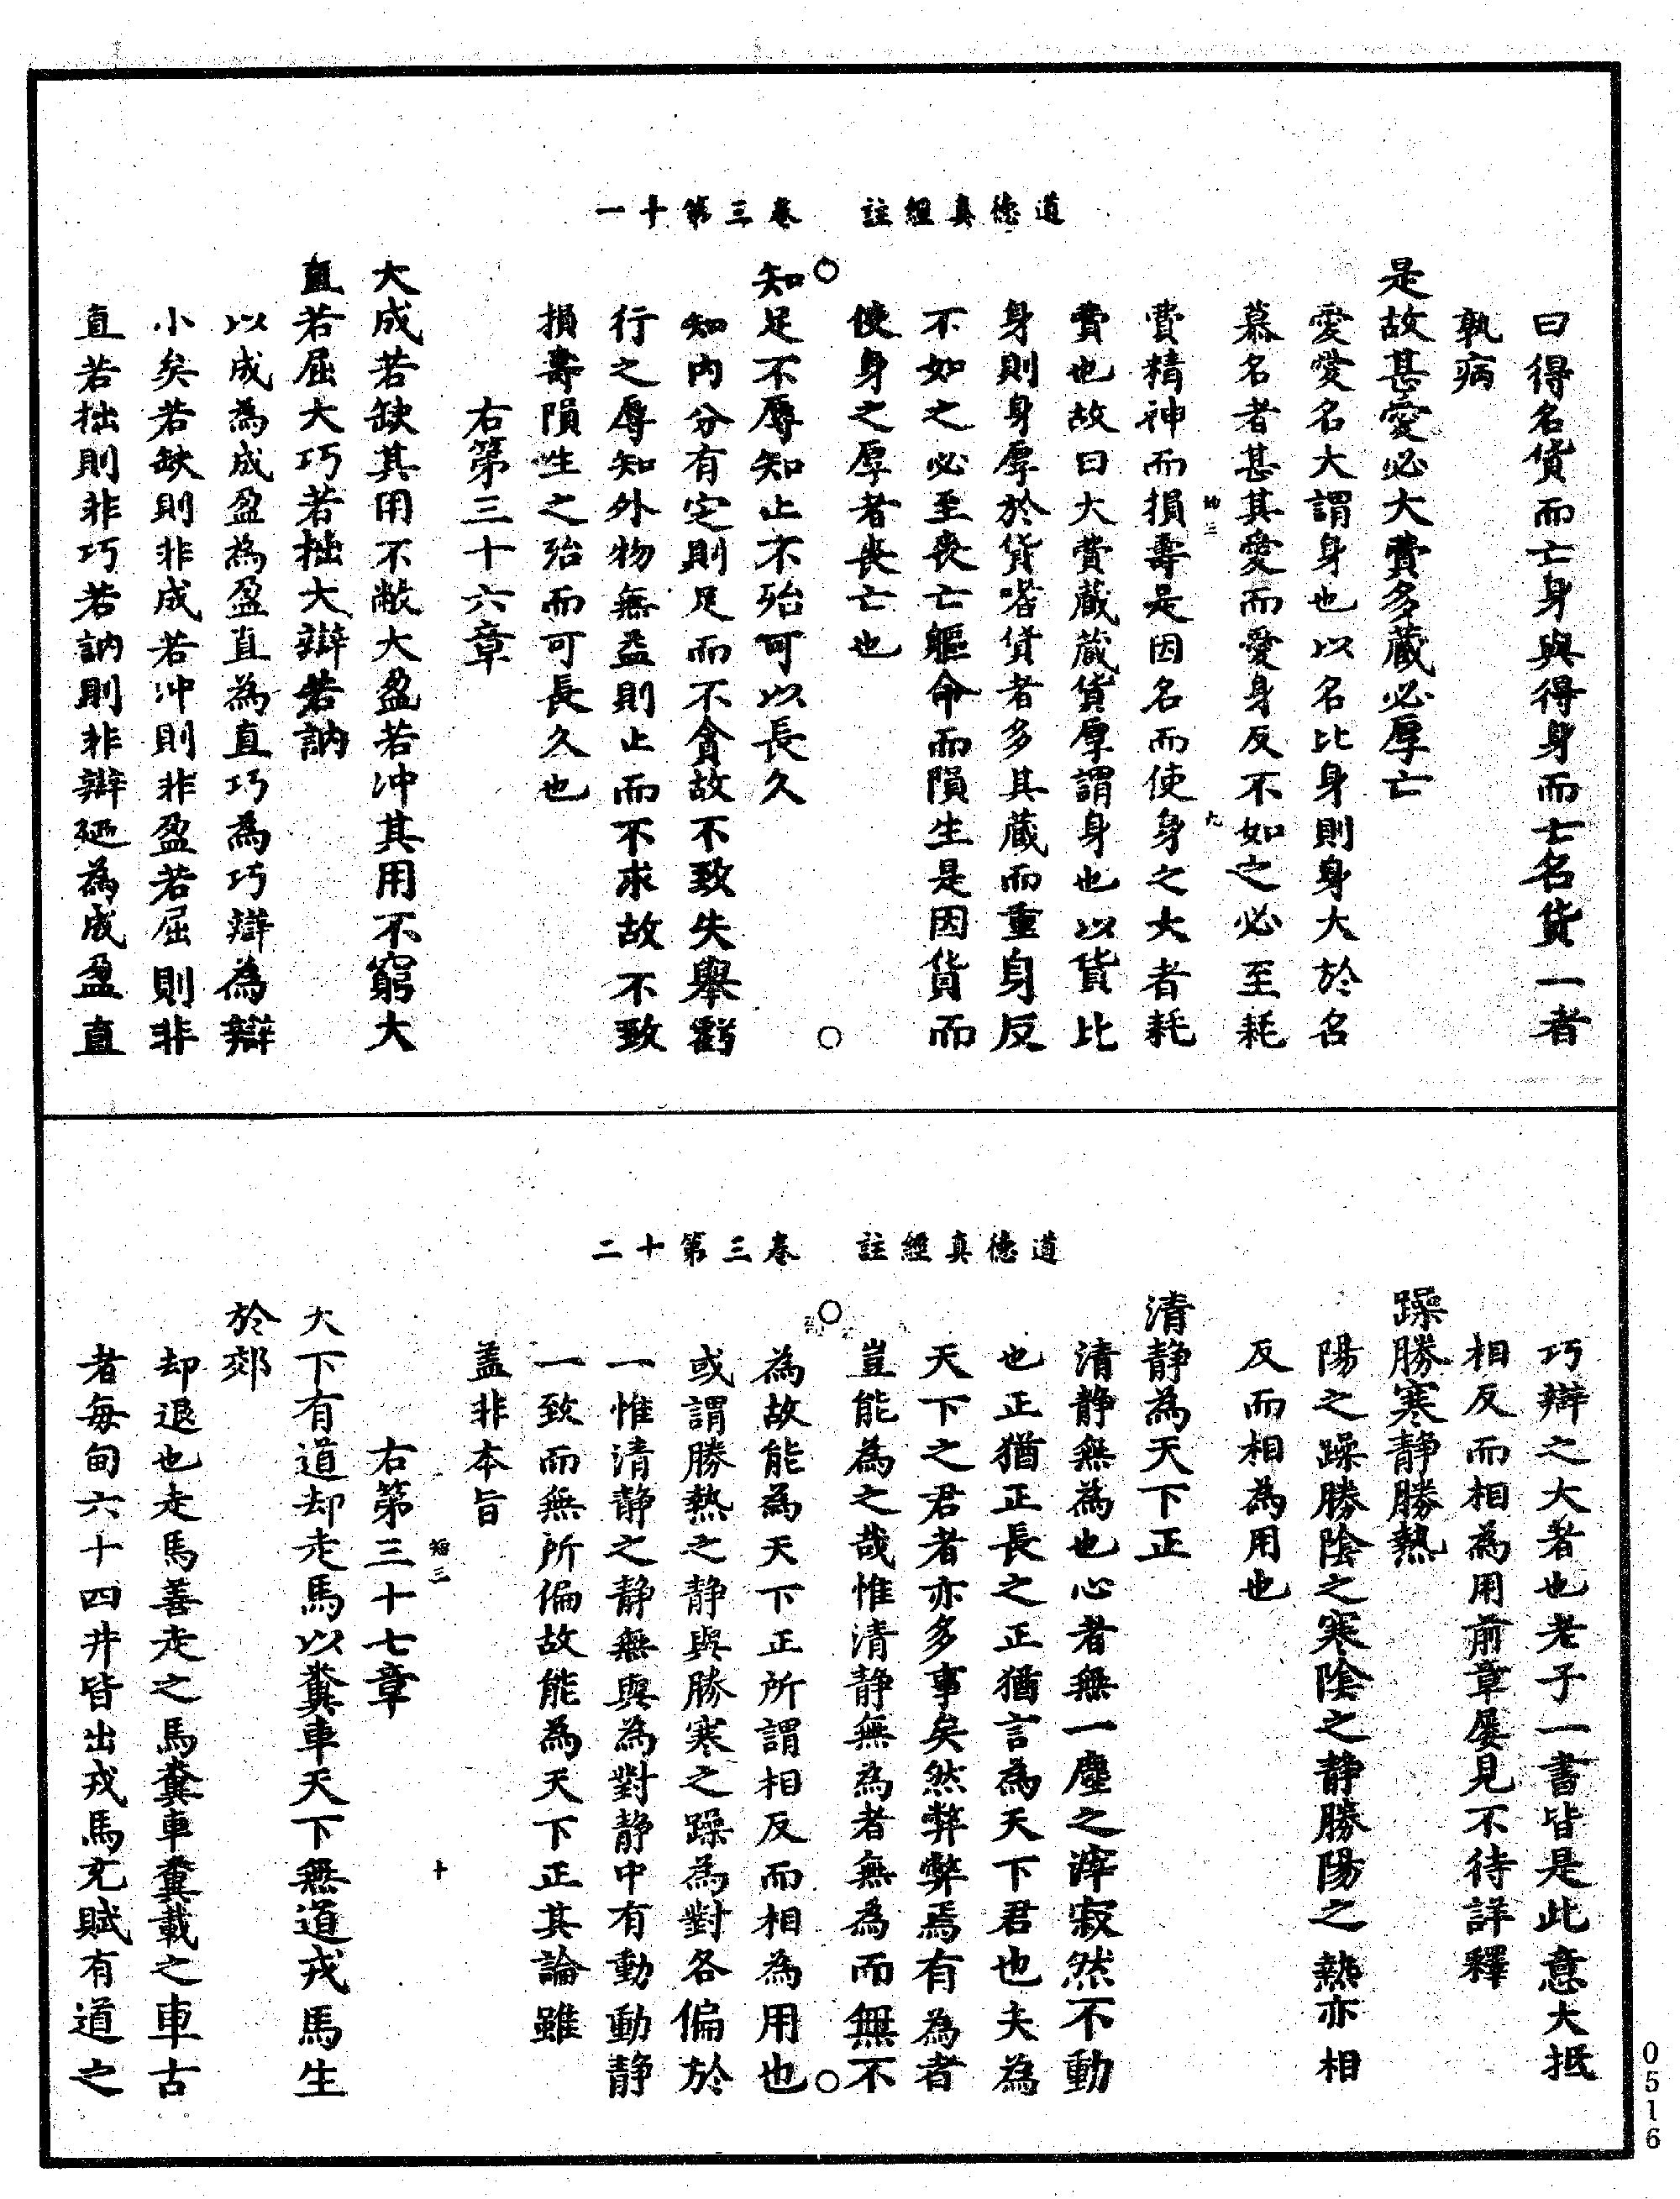 道德真經註　卷三第十一
曰得名貨而亡身與得身而亡名貨一者
孰病
是故甚愛必大費多藏必厚亡
愛愛名大謂身也以名比身則身大於名
慕名者甚其愛而愛身反不如之必至耗
費精神而損壽是因名而使身之大者耗
費也故曰大費藏藏貨厚謂身也以貨比
身則身厚於貨嗜貨者多其藏而重身反
不如之必至喪亡軀命而隕生是因貨而
使身之厚者喪亡也
知足不辱知止不殆可以長久
知內分有定則足而不貪故不致失舉虧
行之辱知外物無益則止而不求故不致
損壽隕生之殆而可長久也
右第三十六章
大成若缺其用不敝大盈若冲其用不窮大
直若屈大巧若拙大辯若訥
以成為成盈為盈直為直巧為巧辯為辯
小矣若缺則非成若冲則非盈若屈則非
直若拙則非巧若訥則非辯廼為成盈直
道德真經註　卷三第十二
巧辯之大者也老子一書皆是此意大抵
相反而相為用前章屢見不待詳釋
躁勝寒静勝熱
陽之躁勝陰之寒陰之静勝陽之熱亦相
反而相為用也
清静為天下正
清静無為也心者無一塵之滓寂然不動
也正猶正長之正猶言為天下君也夫為
天下之君者亦多事矣然弊弊焉有為者
豈能為之哉惟清静無為者無為而無不
為故能為天下正所謂相反而相為用也
或謂勝熱之静與勝寒之躁為對各偏於
一惟清静之静無與為對静中有動動静
一致而無所偏故能為天下正其論雖
蓋非本旨
右第三十七章
短三
十
天下有道却走馬以糞車天下無道戎馬生
於郊
却退也走馬善走之馬糞車糞載之車古
者每甸六十四井皆出戎馬充賦有道之
0516